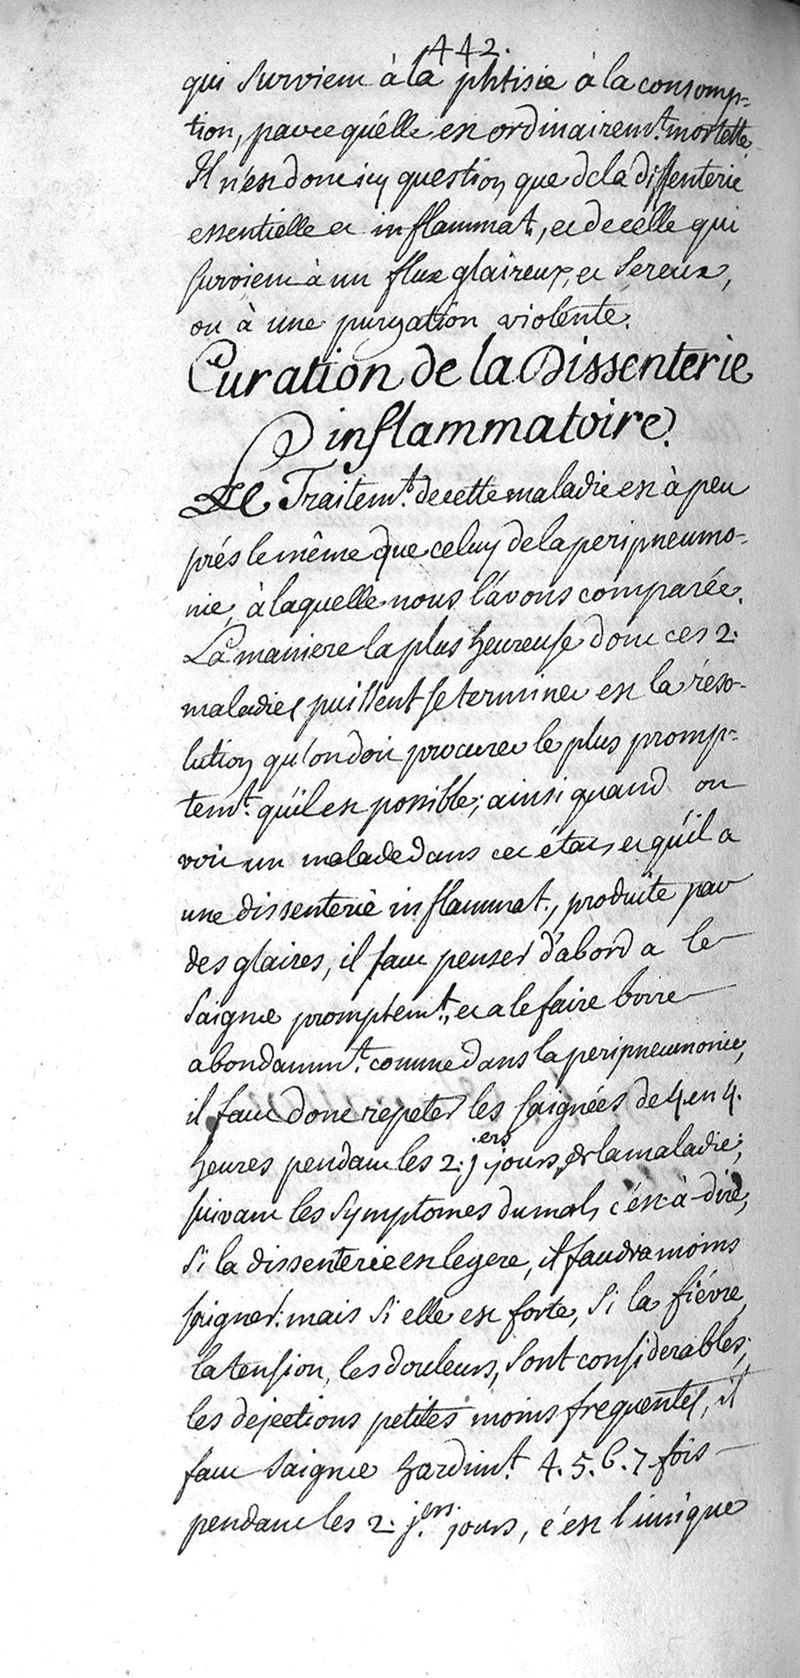 442.
qui survient à la phtisie à la consomp-
tion, parce qu'elle est ordinairemt. mortelle.
Il n'est donc icy question que de la dissenterie
essentielle et inflammat., et de celle qui
survient à un flux glaireux, et sereux,
ou à une purgation violente.
Curation de la Dissenterie
inflammatoire.
Le Traitemt. de cette maladie est à peu
prés le même que celuy de la peripneumo-
nie, à laquelle nous l'avons comparée.
La maniere la plus heureuse dont ces 2.
maladies puissent se terminer est la réso-
lution qu'on doit procurer le plus promp-
temt. qu'il est possible; ainsi quand on
voit un malade dans cet état, et qu'il a
une dissenterie inflammat., produite par
des glaires, il faut penser d'abord a le
saigner promptemt., et a le faire boire
abondammt. comme dans la peripneumonie,
il faut donc repeter les saignées de 4. en 4.
heures pendant les 2. jers jours de la maladie;
suivant les symptomes du mal, c'est-à-dire,
si la dissenterie est legere, il faudra moins
saigner: mais si elle est forte, si la fiévre,
la tension, les douleurs, sont considerables;
les dejections petites moins frequentes, il
faut saigner hardimt. 4. 5. 6. 7. fois
pendant les 2. jers. jours, c'est l'unique